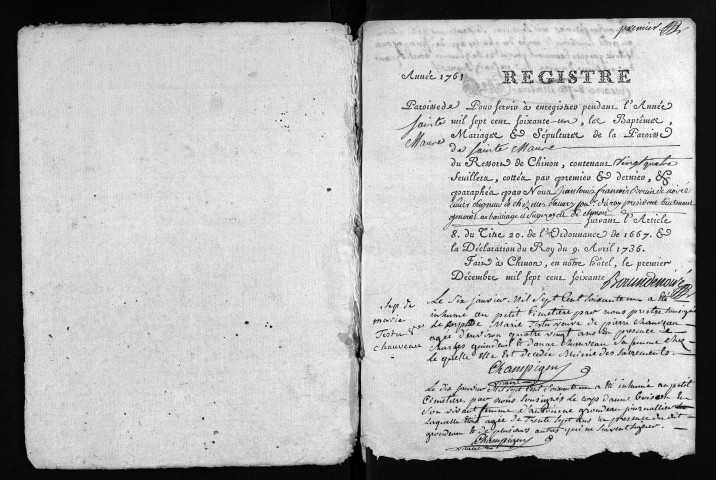 premier
Année 1761
REGISTRE
Paroisse de
Sainte
Maure
Pour servir à enregistrer pendant l'Année
mil sept cent soixante-un, les Baptêmes,
Mariages & Sépultures de la Paroisse
de Sainte Maure
du Ressort de Chinon, contenant Vingt quatre
feuillets, cottés par premier & dernier, &
paraphés par Nous
president lieutenant
general au bailliage et de Chinon suivant l'Article
8. du Titre 20. de l'Ordonnance de 1667. &
la Déclaration du Roy du 9. Avril 1736.
Fait à Chinon, en nôtre hôtel, le premier
Décembre mil sept cent soixante
Sep. de
marie
Testu Ve
Chauveau
Le Six janvier Mil Sept Cent Soixante un a été
inhumé au petit Cimetière par nous prestre soussigné
le corps de Marie Testu veuve de pierre Chauveau
agée d'environ quatre vingt ans en presence de
Charles et de anne Chauveau sa femme chez
lesquelles elle est decedée Munie des Sacrements.
Champigny
vicaire
Le dix janvier Mil Sept Cent Soixante un a été inhumée au petit
Cimetière, par nous soussigné le corps d'anne
Son vivant femme d'antoine journallier
laquelle agée de Trente Sept ans en presence du dit
et de plusieurs autres qui ne scavent signer
Champigny
vicaire